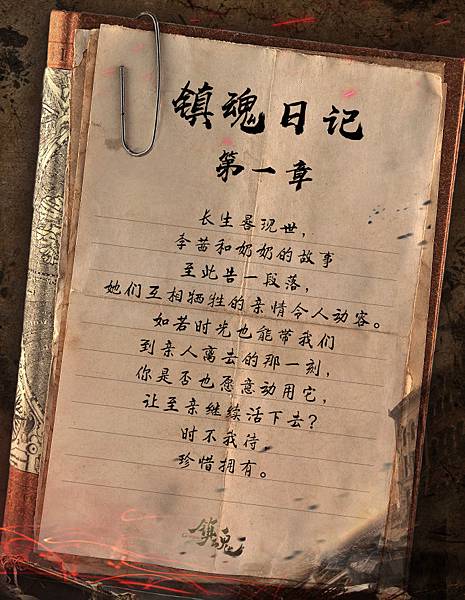 镇魂日记
第一章
长生晷现世，
李茜和奶奶的故事
至此告一段落，
她们互相牺牲的亲情令人动容。
如若时光也能带我们
到亲人离去的那一刻，
你是否也愿意动用它，
让至亲继续活下去？
时不我待
珍惜拥有。
镇魂